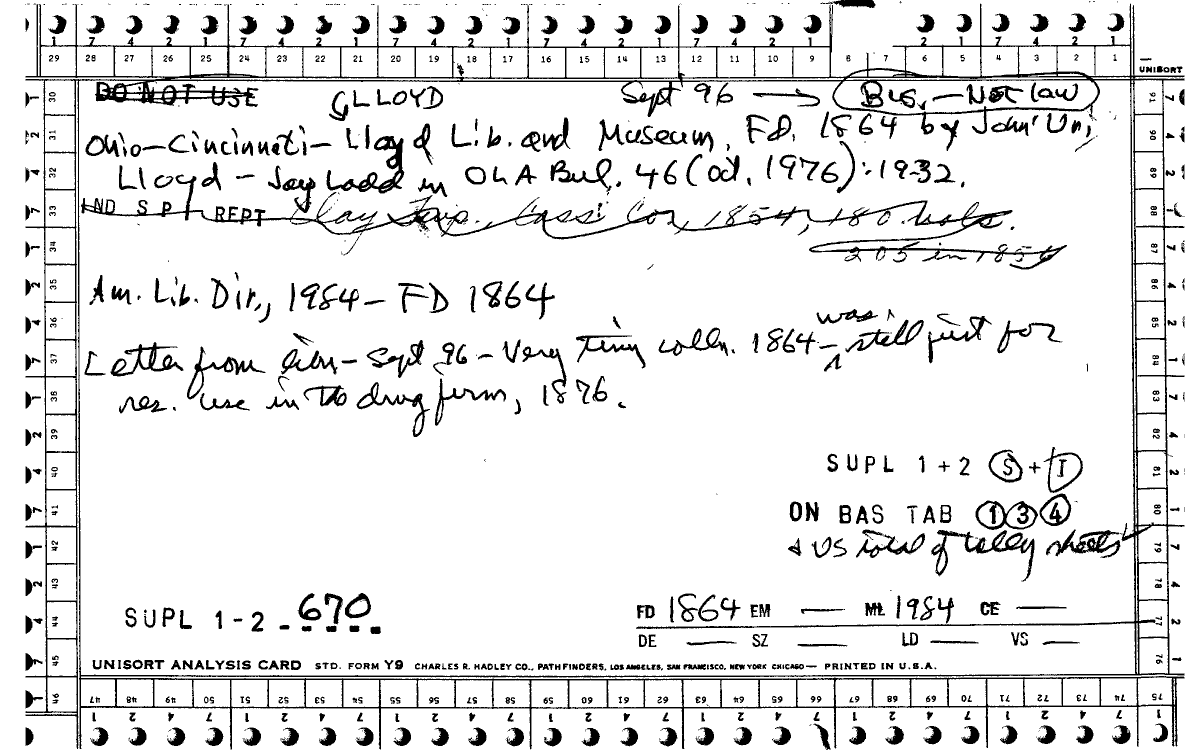 7 4 2 1 7 4 2 1 7 4 2 1 7 4 2 1 7 4 2 1 2 1 7 4 2 1
29 28 27 26 25 24 23 22 21 20 19 18 17 16 15 14 13 12 11 10 9 8 7 6 5 4 3 2 1
UNISORT
DO NOT USE GLLOYD Sept 96 → Bus. – Not law
Ohio–Cincinnati– Lloyd Lib. and Museum, FD. 1864 by John Uri
Lloyd – Jay Ladd in OLA Bul. 46 (Oct. 1976): 19-32.
IND SPT REPT Clay Twp., Cass Co., 1854, 180 vols.
205 in 1856
Am. Lib. Dir., 1984 – FD 1864
was
Letter from libn – Sept 96 – Very tiny colln. 1864 – still just for
res. use in the drug firm, 1876.
SUPL 1+2 S + I
ON BAS TAB 1 3 4
& US total of tally sheets
SUPL 1-2 670
FD 1864 EM — ML 1984 CE —
DE — SZ — LD — VS —
UNISORT ANALYSIS CARD STD. FORM Y9 CHARLES R. HADLEY CO., PATHFINDERS, LOS ANGELES, SAN FRANCISCO, NEW YORK CHICAGO — PRINTED IN U.S.A.
47 48 49 50 51 52 53 54 55 56 57 58 59 60 61 62 63 64 65 66 67 68 69 70 71 72 73 74 75